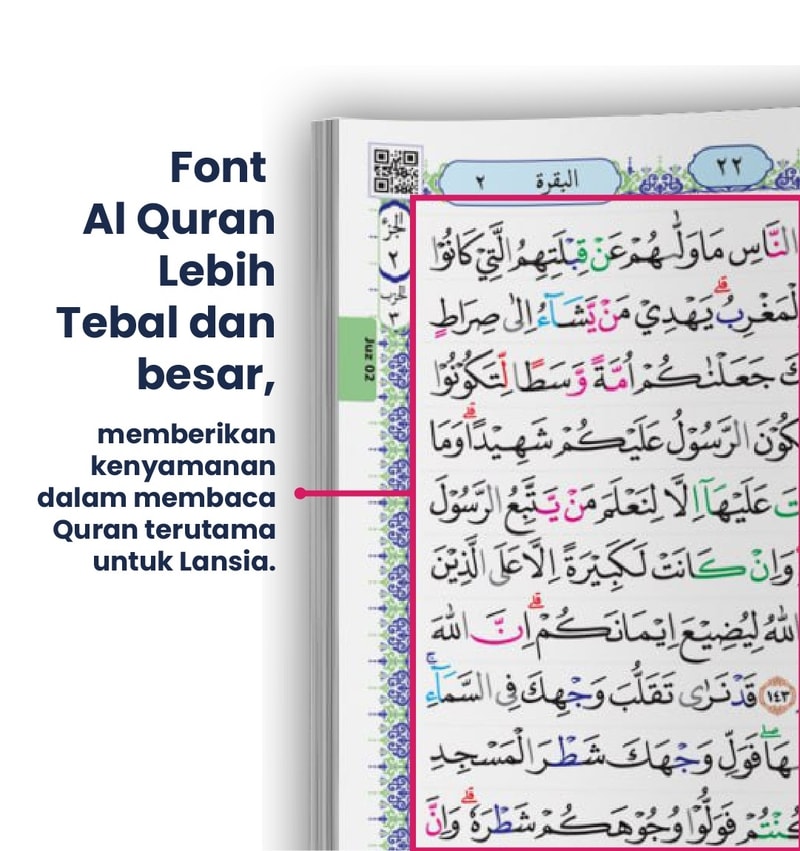 Font
Al Quran
Lebih
Tebal dan
besar,
memberikan
kenyamanan
dalam membaca
Quran terutama
untuk Lansia.
٢٢
البقرة ٢
الجزء
٢
الحزب
٣
Juz 02
النَّاسِ مَا وَلّٰىهُمْ عَنْ قِبْلَتِهِمُ الَّتِيْ كَانُوْا
الْمَغْرِبُۗ يَهْدِيْ مَنْ يَّشَاۤءُ اِلٰى صِرَاطٍ
جَعَلْنٰكُمْ اُمَّةً وَّسَطًا لِّتَكُوْنُوْا
كُوْنَ الرَّسُوْلُ عَلَيْكُمْ شَهِيْدًاۗ وَمَا
عَلَيْهَآ اِلَّا لِنَعْلَمَ مَنْ يَّتَّبِعُ الرَّسُوْلَ
وَاِنْ كَانَتْ لَكَبِيْرَةً اِلَّا عَلَى الَّذِيْنَ
اللّٰهُ لِيُضِيْعَ اِيْمَانَكُمْۗ اِنَّ اللّٰهَ
١٤٣ قَدْ نَرٰى تَقَلُّبَ وَجْهِكَ فِى السَّمَاۤءِۚ
هَاۖ فَوَلِّ وَجْهَكَ شَطْرَ الْمَسْجِدِ
كُنْتُمْ فَوَلُّوْا وُجُوْهَكُمْ شَطْرَهٗۗ وَاِنَّ